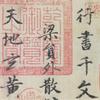 行書千文
梁員外散
天地玄黃